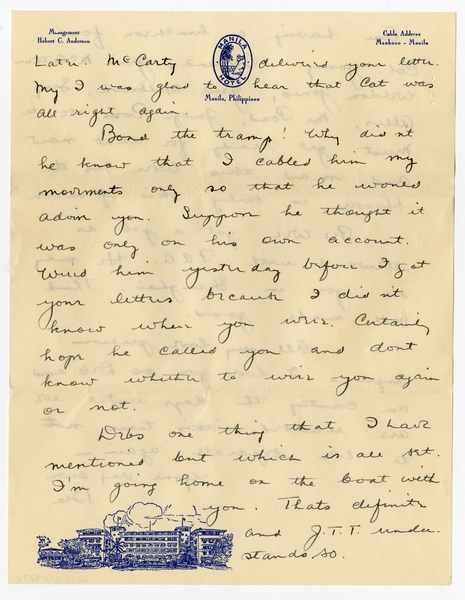 Management
Hubert C. Anderson
MANILA
HOTEL
Manila, Philippines
Cable Address
Manhoco - Manila
Later. McCarty delivered your letter.
My I was glad to hear that Cat was
all right again.
Bond the tramp! Why didn't
he know that I cabled him my
movements only so that he would
advise you. Suppose he thought it
was only on his own account.
Wired him yesterday before I got
your letters because I didn't
know where you were. Certainly
hope he called you and dont
know whether to wire you again
or not.
Debs one thing that I have
mentioned but which is all set.
I'm going home on the boat with
you. Thats definite
and J.T.T. under-
stands so.